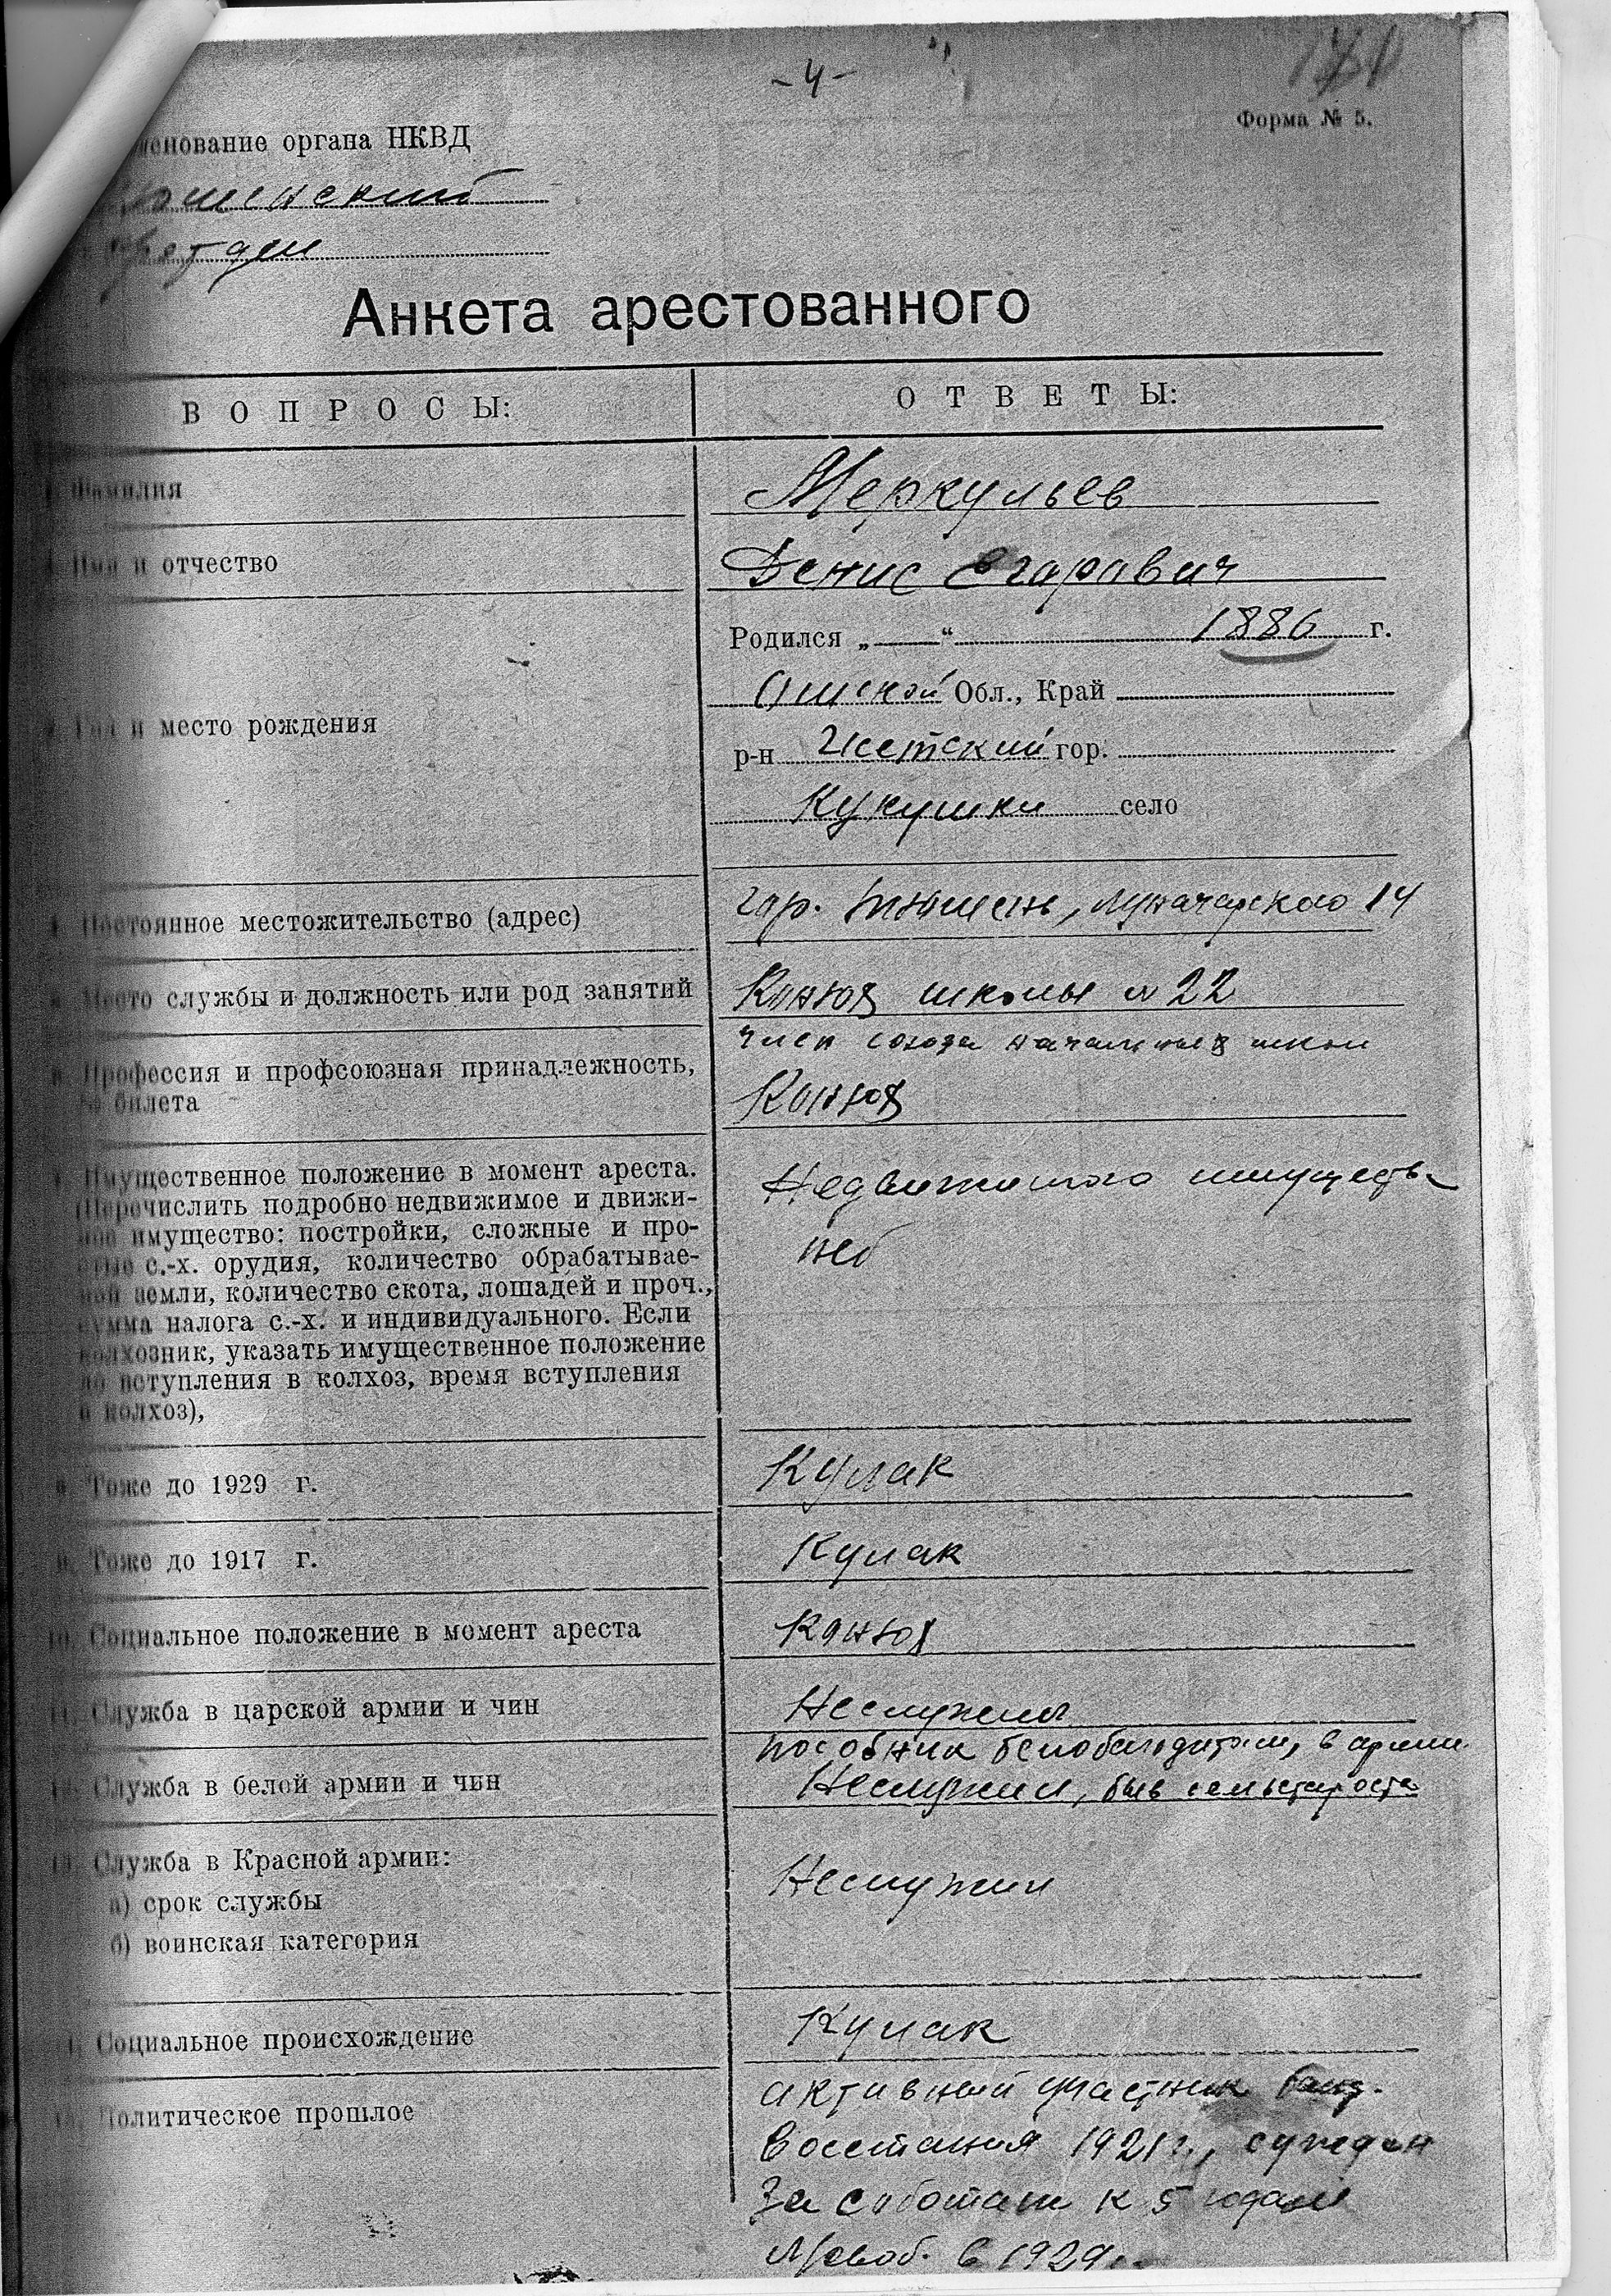 -4-
Форма № 5.
енование органа НКВД
Анкета арестованного
ВОПРОСЫ:
ОТВЕТЫ:
Фамилия
Меркульев
Имя и отчество
Денис Егарович
Родился „ — “ 1886 г.
Омской Обл., Край
Год и место рождения
р-н Исетский гор.
Кукушки село
Постоянное местожительство (адрес)
гор. Тюмень, Луначарского 14
Место службы и должность или род занятий
Конюх школы № 22
член союза начальных школ
Профессия и профсоюзная принадлежность,
№ билета
Конюх
Имущественное положение в момент ареста.
(Перечислить подробно недвижимое и движи-
мое имущество: постройки, сложные и про-
стые с.-х. орудия, количество обрабатывае-
мой земли, количество скота, лошадей и проч.,
сумма налога с.-х. и индивидуального. Если
колхозник, указать имущественное положение
до вступления в колхоз, время вступления
в колхоз),
Недвижимого имуществ
нет
8. Тоже до 1929 г.
Кулак
9. Тоже до 1917 г.
Кулак
10. Социальное положение в момент ареста
Конюх
11. Служба в царской армии и чин
Неслужил
пособник белобандитам, в армии
12. Служба в белой армии и чин
Неслужил, быв сельстароста
13. Служба в Красной армии:
а) срок службы
б) воинская категория
Неслужил
Социальное происхождение
Кулак
Политическое прошлое
активный участник банд.
восстания 1921 г., сужден
За саботаж к 5 годам
освоб. в 1929 г.